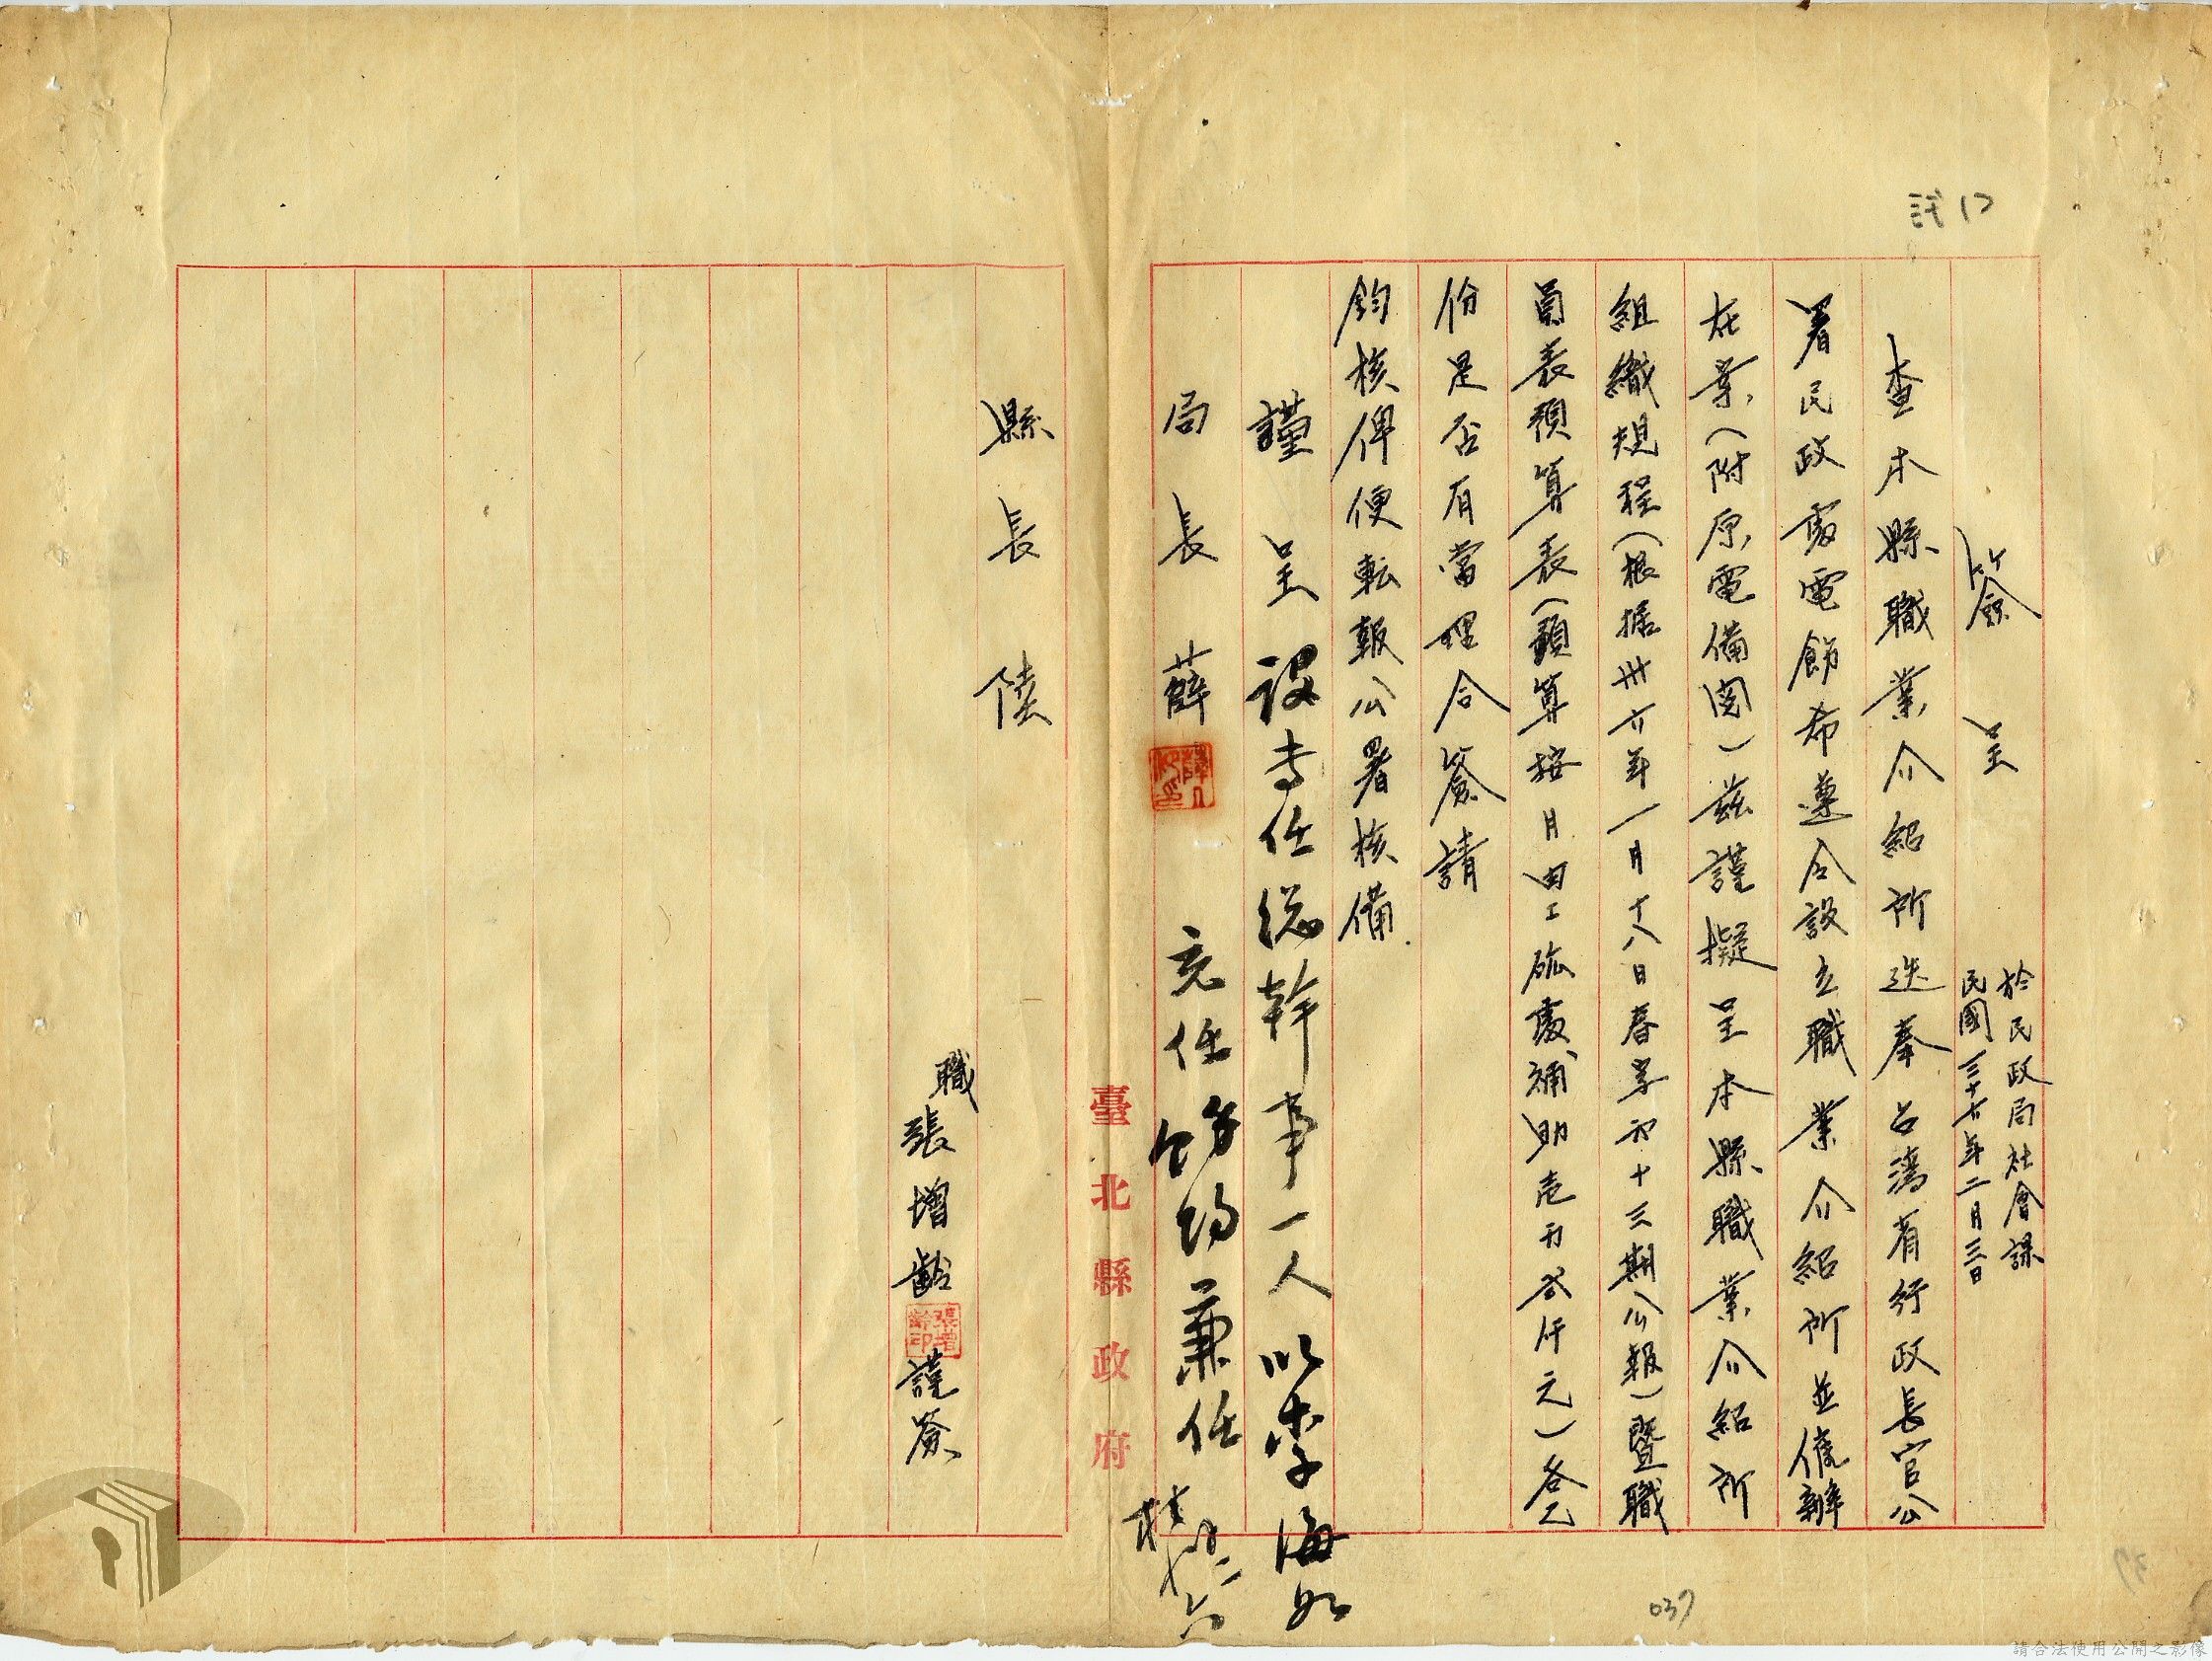 簽呈
於民政局社會課
民國三十六年二月三日
查本縣職業介紹所迭奉台灣省行政長官公
署民政處電飭希遵令設立職業介紹所並催辦
在業（附原電備閱）茲謹擬呈本縣職業介紹所
組織規程（根据卅六年一月十八日春字第十三期公報）暨職
員表預算表（預算按月由工砿處補助壱万弍仟元）各乙
份是否有當理合簽請
鈞核俾便転報公署核備
謹呈
局長薛
縣長陸
職張增齡
張增齡印
謹簽
設专任总幹事一人以李海
充任
兼任
臺北縣政府
037
37
請合法使用公開之影像